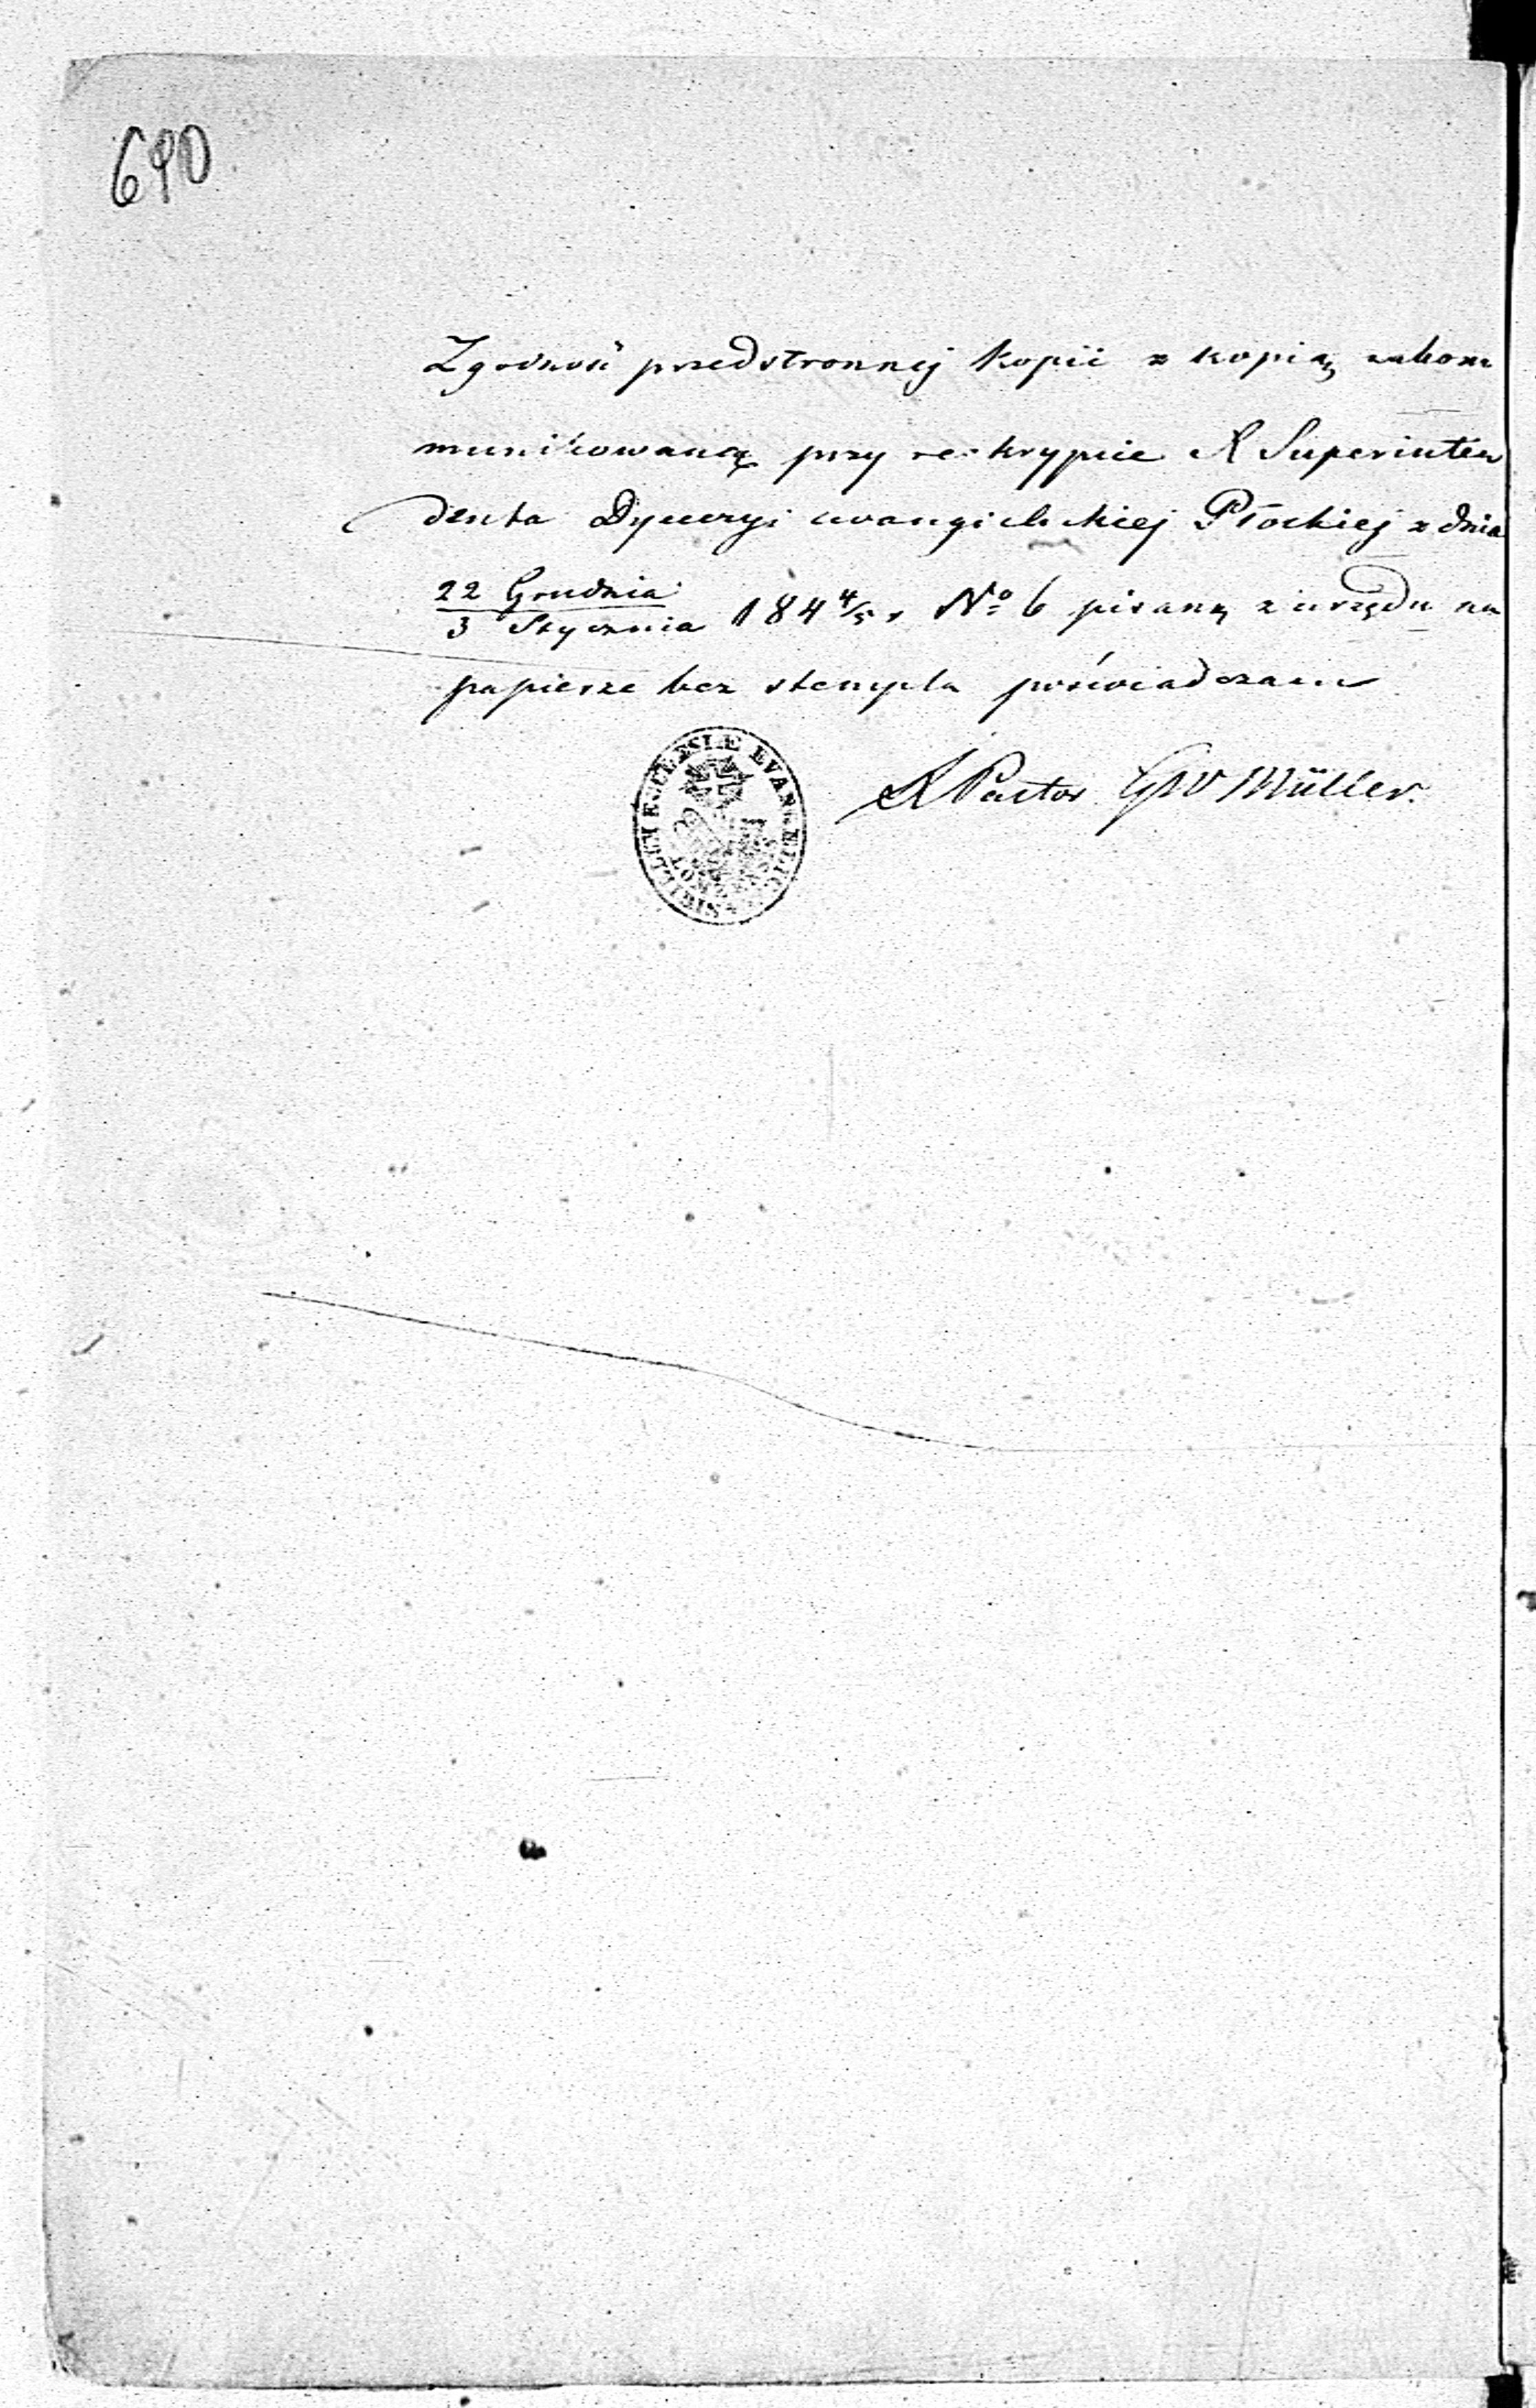 690
Zgodność przedstronnej Kopii z kopią zakom
munikowaną przy reskrypcie X Superinten
denta Dyecezyi ewangielickiej Płockiej z dnia
22 Grudnia
3 Stycznia 184 4/5 r N° 6 pisaną z urzędu na
papierze bez stempla poświadczam
X Pastor GW Müller.
SIGILLUM ECCLESIÆ EVANGELIC